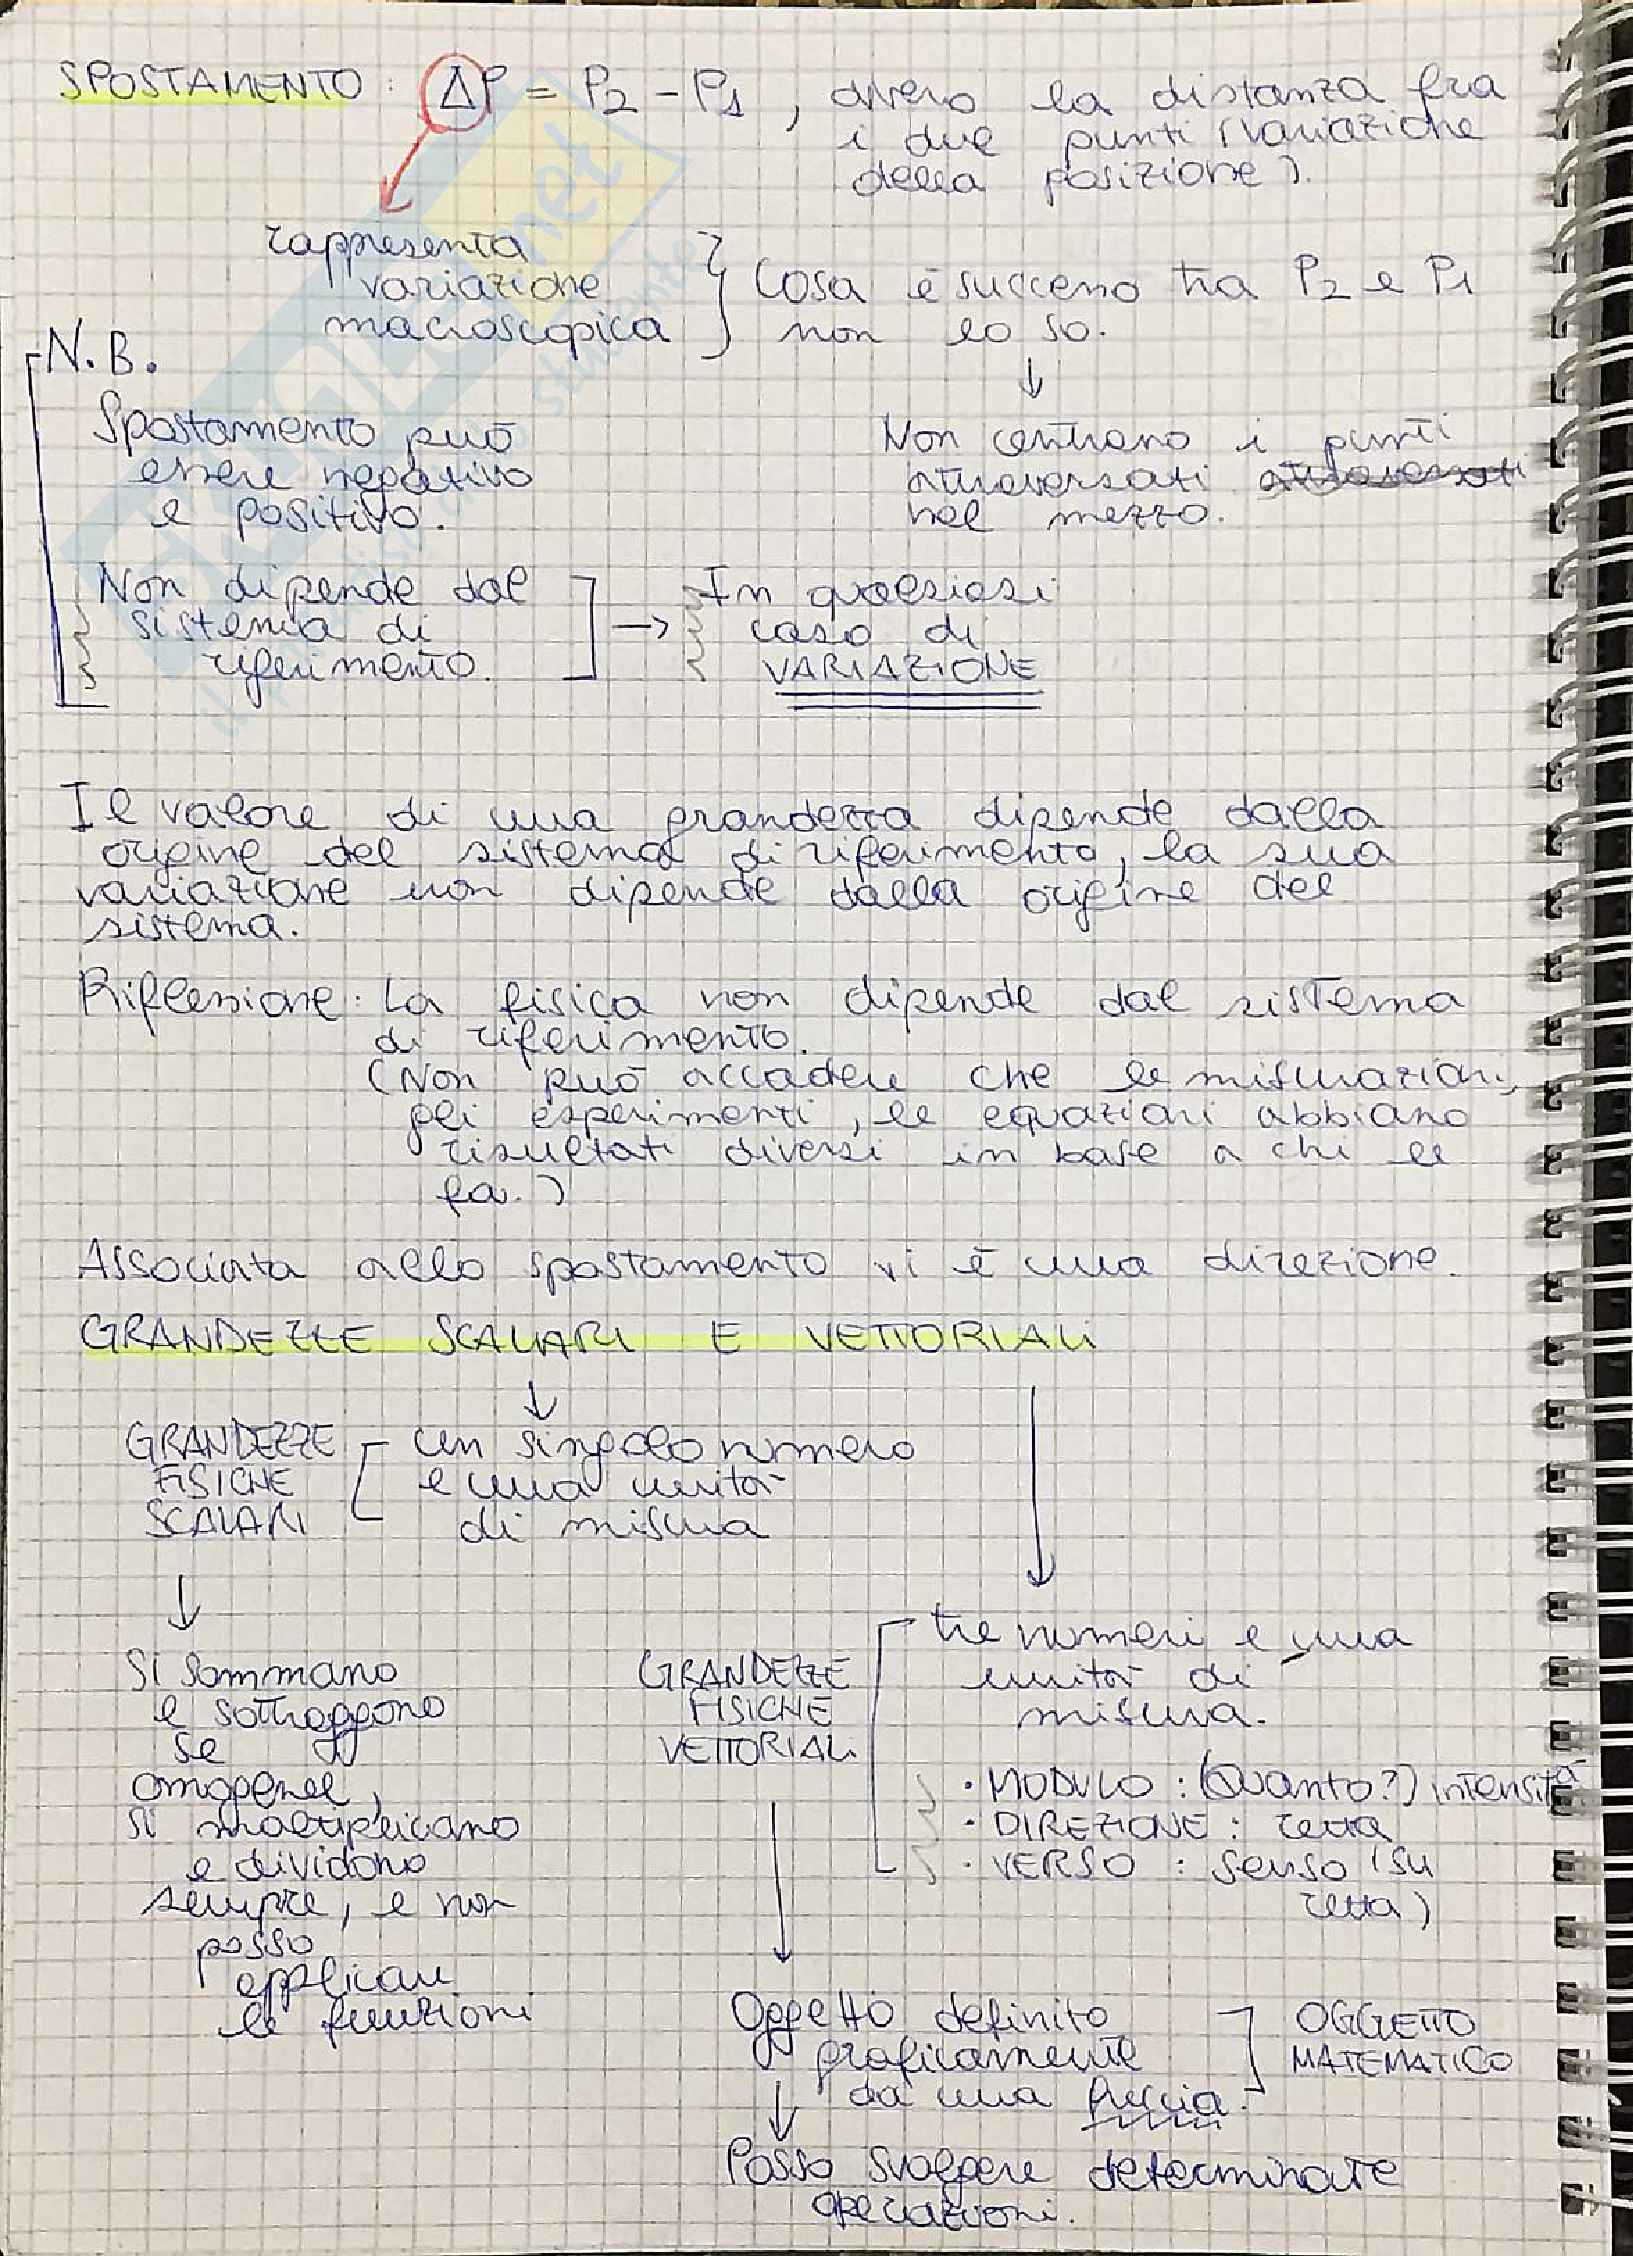 SPOSTAMENTO : ΔP = P2 - P1 , ovvero la distanza fra
i due punti (variazione
della posizione).
rappresenta
variazione
macroscopica
Cosa è successo tra P2 e P1
non lo so.
N.B.
Spostamento può
essere negativo
e positivo.
Non centrano i punti
attraversati attraversati
nel mezzo.
Non dipende dal
sistema di
riferimento.
In qualsiasi
caso di
VARIAZIONE
Il valore di una grandezza dipende dalla
origine del sistema di riferimento, la sua
variazione non dipende dalla origine del
sistema.
Riflessione: La fisica non dipende dal sistema
di riferimento.
(Non può accadere che le misurazioni,
gli esperimenti, le equazioni abbiano
risultati diversi in base a chi le
fa.)
Associata allo spostamento vi è una direzione.
GRANDEZZE SCALARI E VETTORIALI
GRANDEZZE
FISICHE
SCALARI
un singolo numero
e una unità
di misura
Si sommano
e sottraggono
se
omogenee,
si moltiplicano
e dividono
sempre, e non
posso
applicare
le funzioni
GRANDEZZE
FISICHE
VETTORIALI
tre numeri e una
unità di
misura.
• MODULO : (Quanto?) intensità
• DIREZIONE : retta
• VERSO : senso (su
retta)
Oggetto definito
graficamente
da una freccia.
OGGETTO
MATEMATICO
Posso svolgere determinate
operazioni.